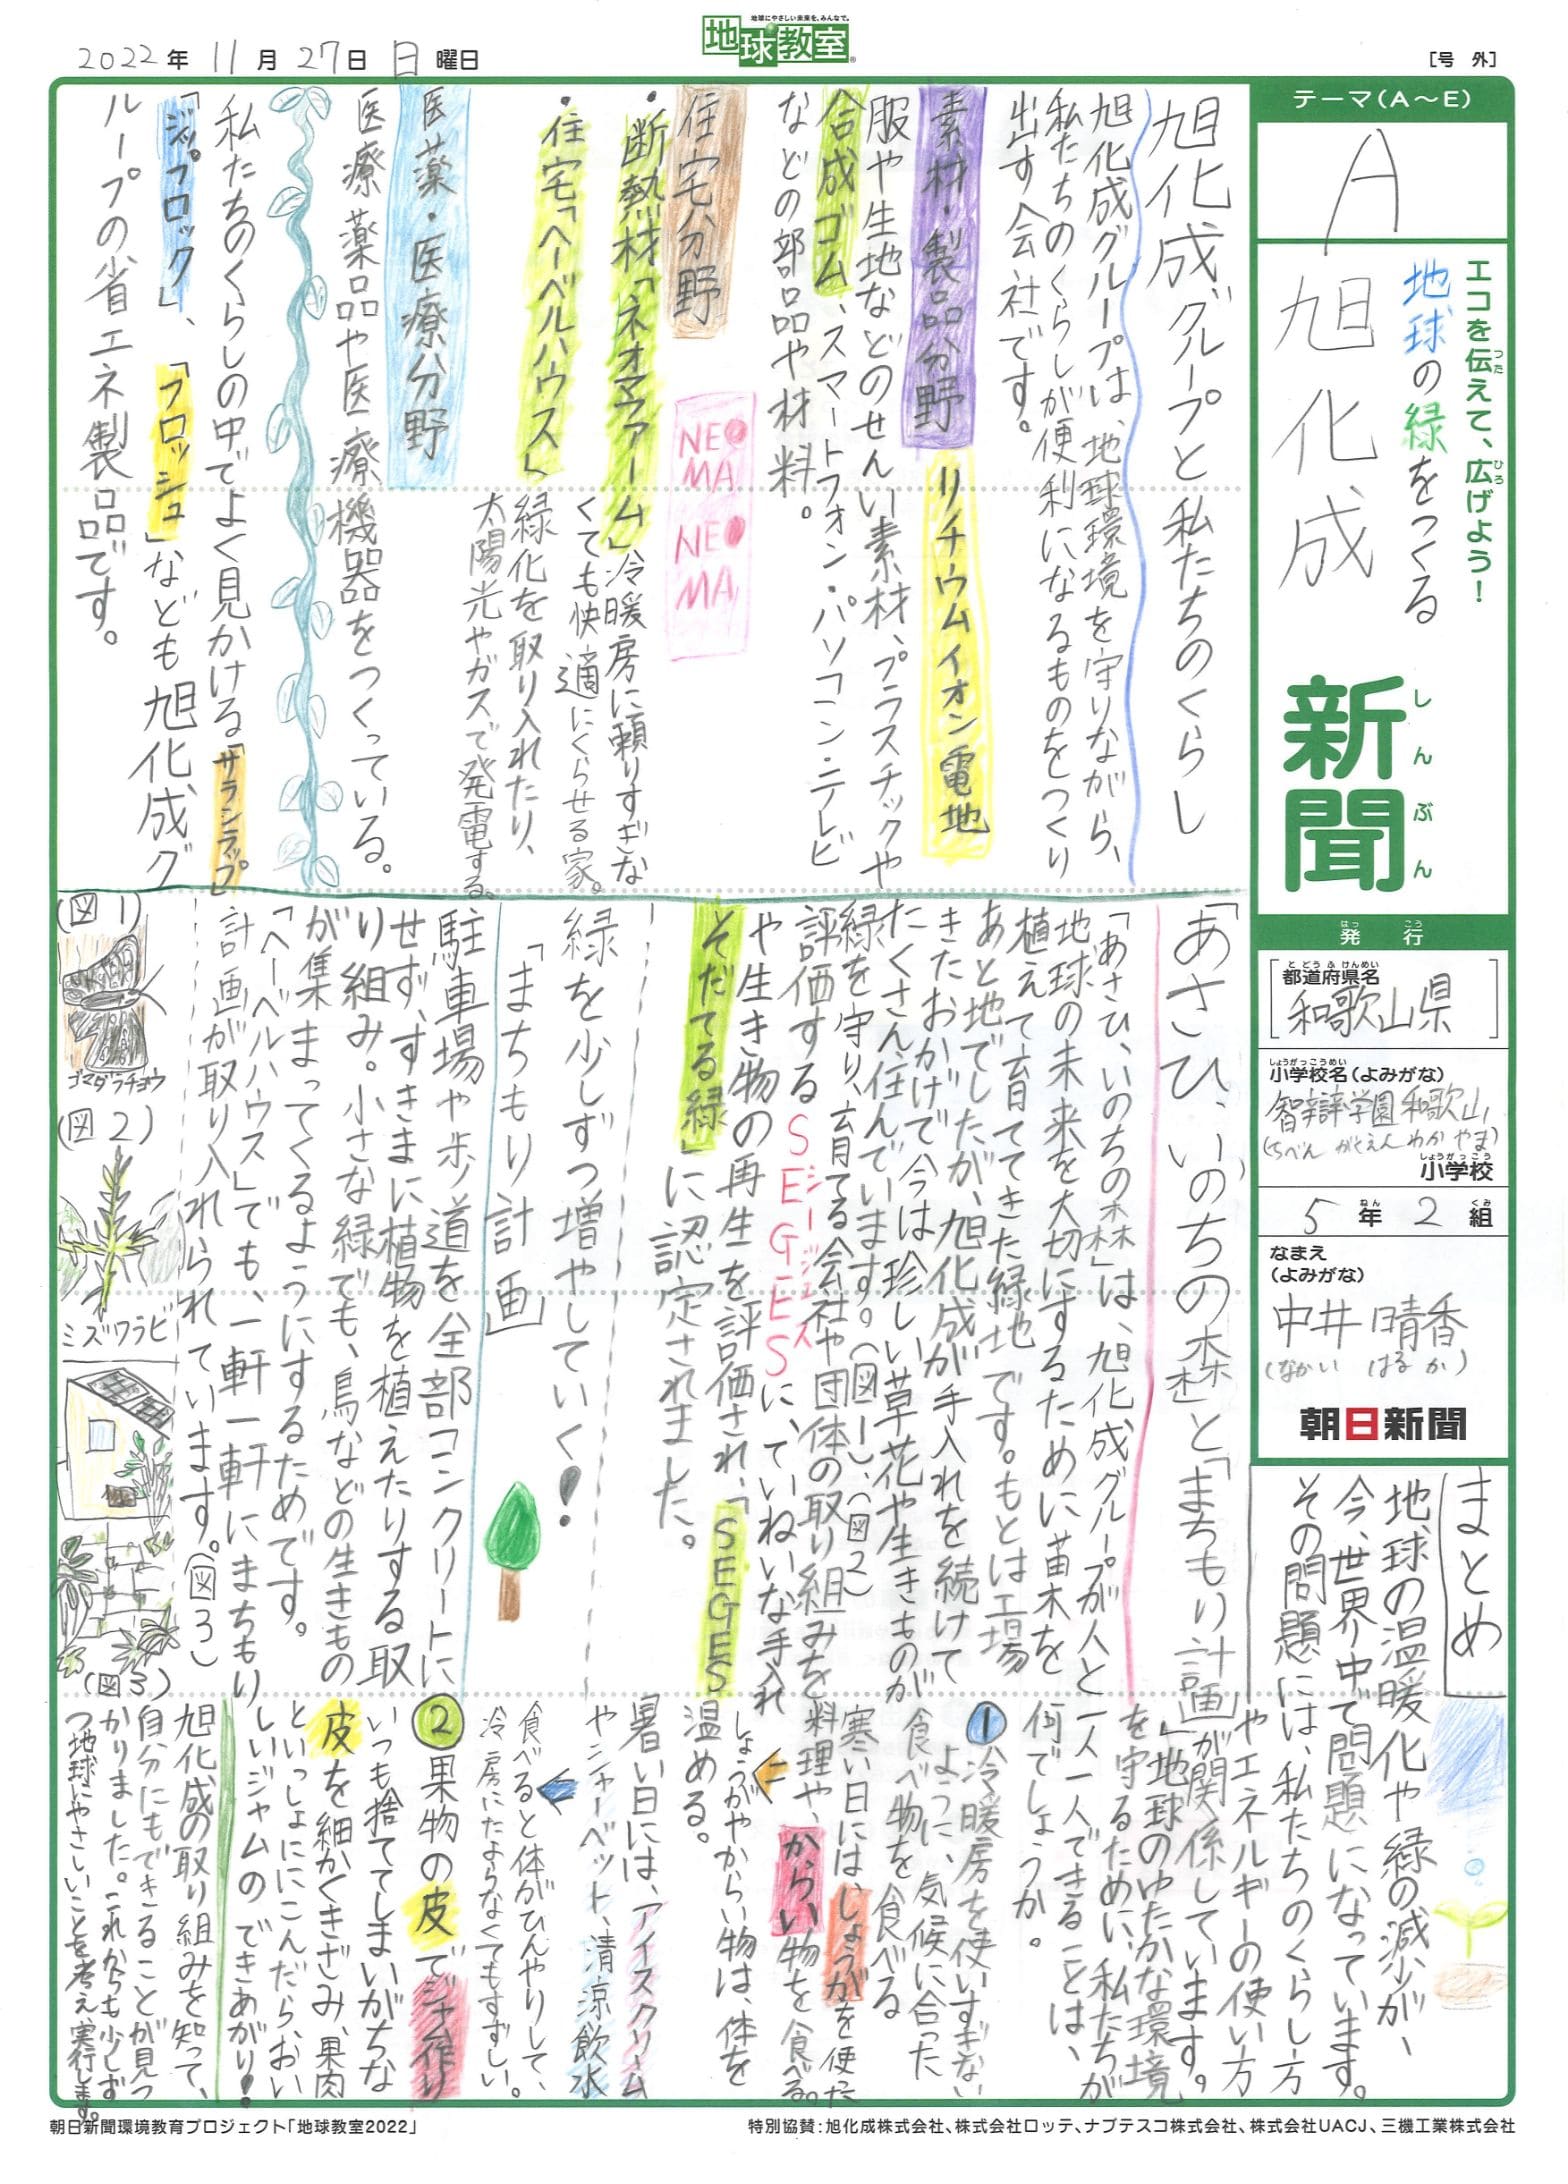 2022年 11月 27日 日曜日
地球にやさしい未来を、みんなで。
地球教室
[号 外]
テーマ(A〜E)
A
エコを伝えて、広げよう!
つた
ひろ
地球の緑をつくる
旭化成
新聞
しんぶん
発行
はっこう
都道府県名
とどうふけんめい
和歌山県
小学校名(よみがな)
しょうがっこうめい
智辯学園和歌山
(ちべんがくえんわかやま)
小学校
しょうがっこう
5年 2組
ねん くみ
なまえ
(よみがな)
中井 晴香
(なかい はるか)
朝日新聞
旭化成グループと私たちのくらし
旭化成グループは、地球環境を守りながら、
私たちのくらしが便利になるものをつくり
出す会社です。
素材・製品分野 リチウムイオン電地
服や生地などのせんい素材、プラスチックや
合成ゴム、スマートフォン・パソコン・テレビ
などの部品や材料。
住宅分野
NEOMA NEOMA
・断熱材「ネオマフォーム」冷暖房に頼りすぎな
くても快適にくらせる家。
・住宅「ヘーベルハウス」緑化を取り入れたり、
太陽光やガスで発電する。
医薬・医療分野
医療薬品や医療機器をつくっている。
私たちのくらしの中でよく見かける「サランラップ」
「ジップロック」、「フロッシュ」なども旭化成グ
ループの省エネ製品です。
「あさひ・いのちの森」と「まちもり計画」
「あさひ・いのちの森」は、旭化成グループが人と
地球の未来を大切にするために苗木を
植えて育ててきた緑地です。もとは工場
あと地でしたが、旭化成が手入れを続けて
きたおかげで今は珍しい草花や生きものが
たくさん住んでいます。(図1)、(図2)
緑を守り、育てる会社や団体の取り組みを
評価するSEGESに、ていねいな手入れ
シージェス
や生き物の再生を評価され、「SEGES
そだてる緑」に認定されました。
緑を少しずつ増やしていく!
「まちもり計画」
駐車場や歩道を全部コンクリートに
せず、すきまに植物を植えたりする取
り組み。小さな緑でも、鳥などの生きもの
が集まってくるようにするためです。
「ヘーベルハウス」でも、一軒一軒にまちもり
計画が取り入れられています。(図3)
(図1)
ゴマダラチョウ
(図2)
ミズワラビ
(図3)
まとめ
地球の温暖化や緑の減少が、
今、世界中で問題になっています。
その問題には、私たちのくらし方
やエネルギーの使い方
が関係しています。
地球のゆたかな環境
を守るために、私たちが
一人一人でできることは、
何でしょうか。
①冷暖房を使いすぎない
ように、気候に合った
食べ物を食べる
寒い日には、しょうがを使た
料理や、からい物を食べる。
しょうがやからい物は、体を
温める。
暑い日には、アイスクリーム
やシャーベット、清涼飲水
食べると体がひんやりして、
冷房にたよらなくてもすずしい。
②果物の皮でジャム作り
いつも捨ててしまいがちな
皮を細かくきざみ、果肉
といっしょににこんだらおい
しいジャムのできあがり!
旭化成の取り組みを知って、
自分にもできることが見つ
かりました。これからも少しず
つ地球にやさしいことを考え、実行します。
朝日新聞環境教育プロジェクト「地球教室2022」
特別協賛:旭化成株式会社、株式会社ロッテ、ナブテスコ株式会社、株式会社UACJ、三機工業株式会社